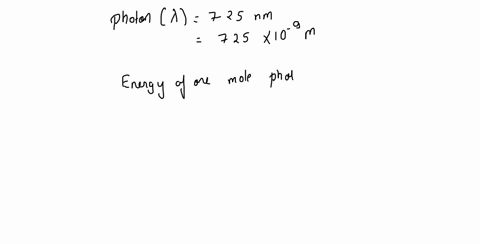 Photon (λ) = 725 nm
= 725 × 10⁻⁹ m
Energy of one mole phot